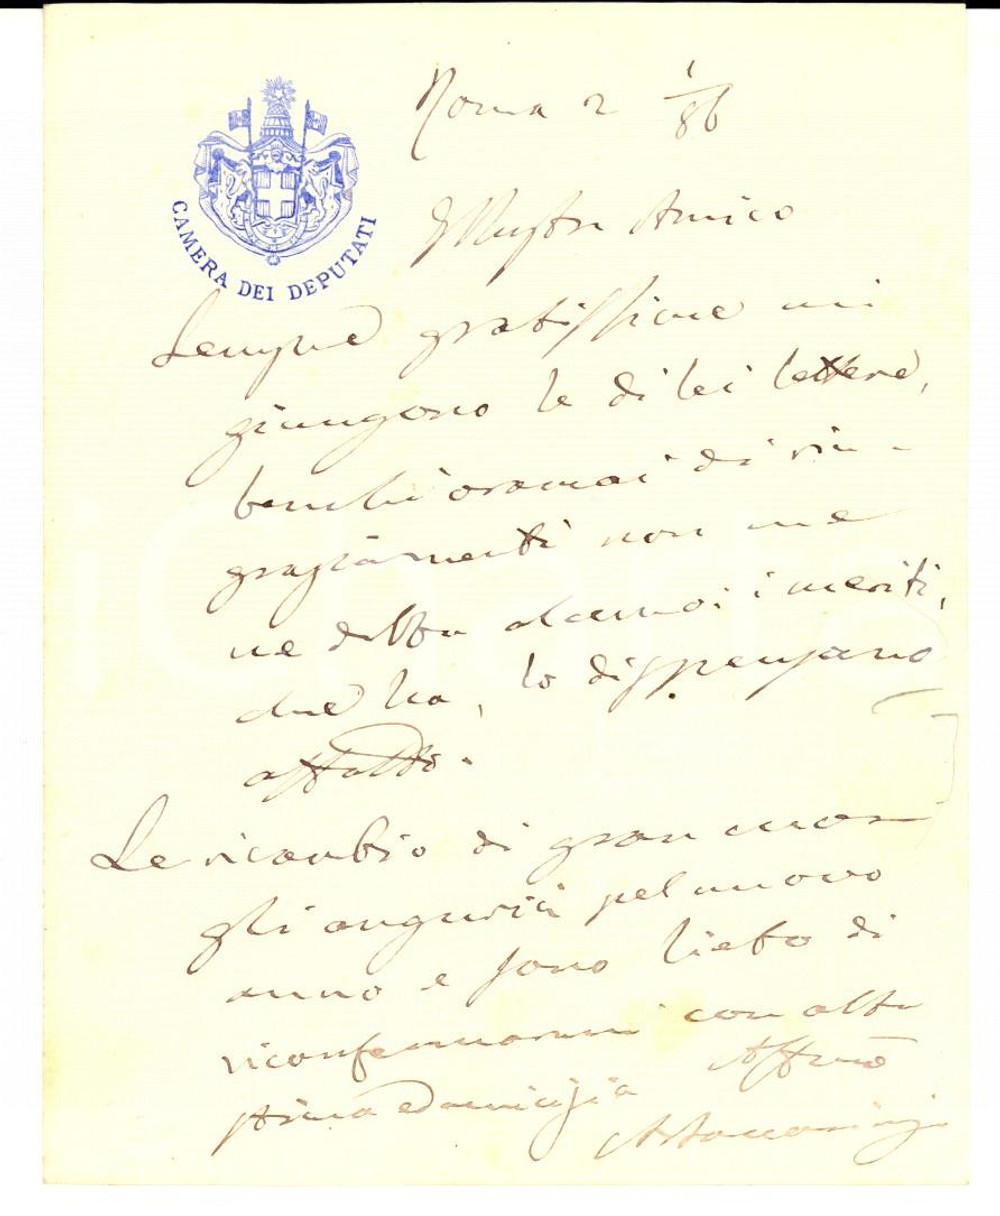 CAMERA DEI DEPUTATI
Roma 2 1/86
Illustre Amico
Sempre gratissime mi
giungono le di lei lettere,
benchè oramai di rin-
graziamenti non me
ne debba alcuno: i meriti,
che ha, lo dispensano
affatto.
Le ricambio di gran cuore
gli augurii pel nuovo
anno e sono lieto di
riconfermarmi con alta
stima ed amicizia Affmo